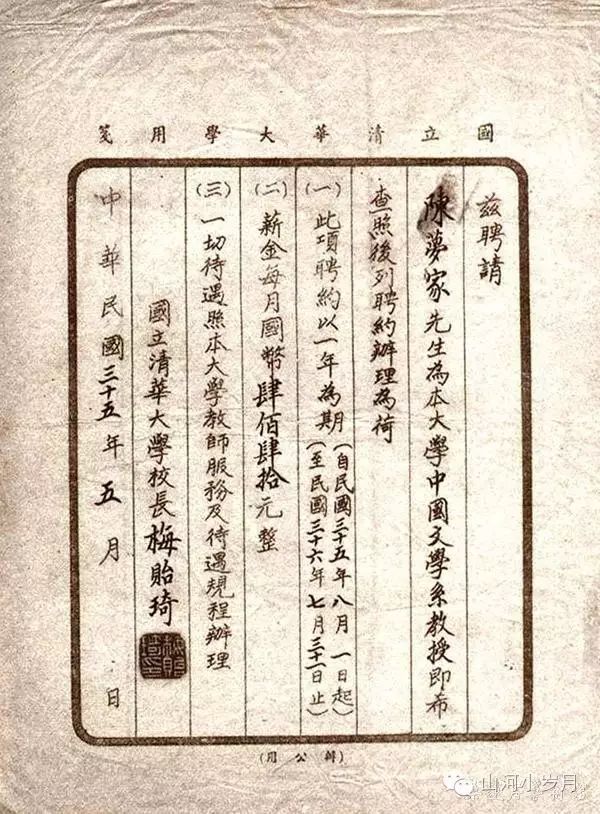 國立清華大學用箋
茲聘請
陳夢家先生為本大學中國文學系教授即希
查照後列聘約辦理為荷
(一)此項聘約以一年為期(自民國三十五年八月一日起)
(至民國三十六年七月三十一日止)
(二)薪金每月國幣肆佰肆拾元整
(三)一切待遇照本大學教師服務及待遇規程辦理
國立清華大學校長梅貽琦
中華民國三十五年五月 日
(辦公用)
山河小岁月